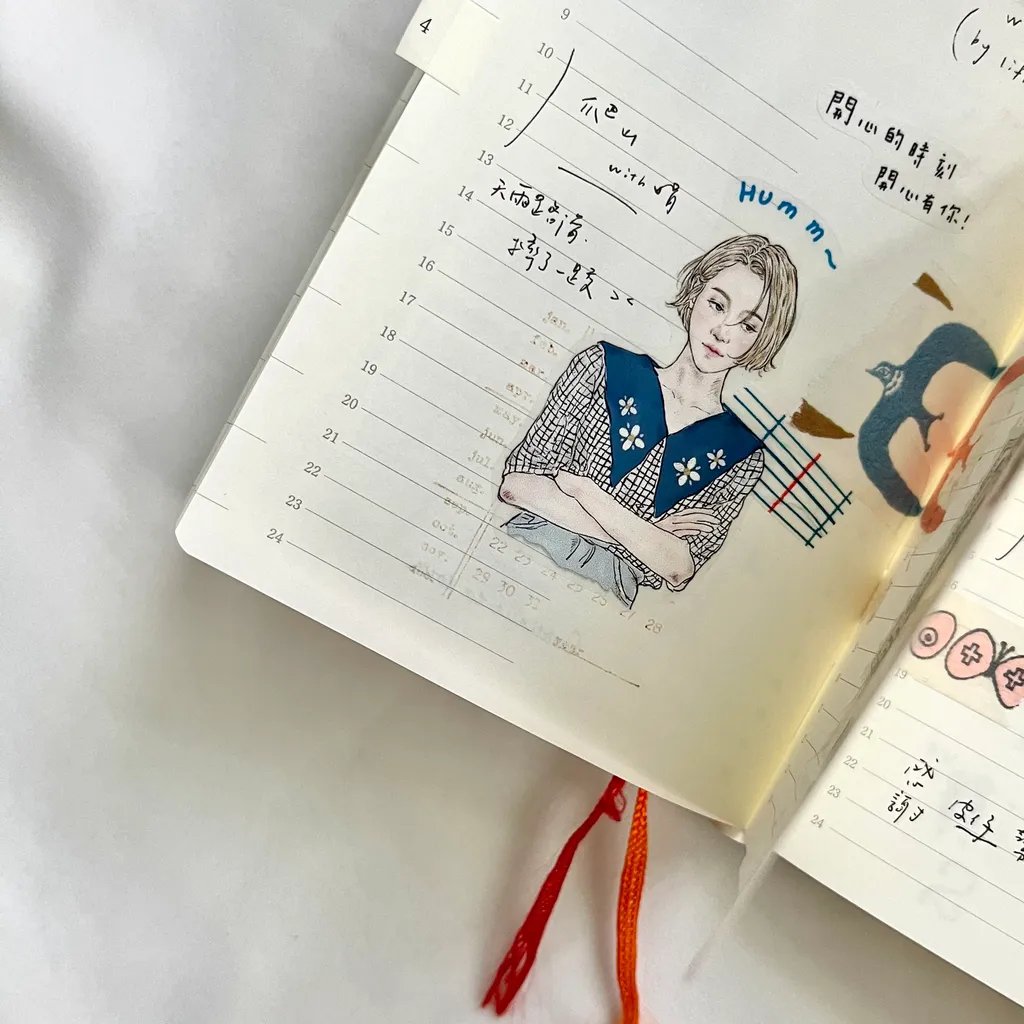 4
9
10
11
12
13
14
15
16
17
18
19
20
21
22
23
24
爬山
with
天雨路滑.
摔了一跤 ><
HUMM~
開心的時刻
開心有你!
(by
jan.
feb.
mar.
apr.
may.
jun.
jul.
aug.
sep.
oct.
nov.
22 23 24 25 26 27 28
29 30 31
19
20
21
22
23
24
感
謝